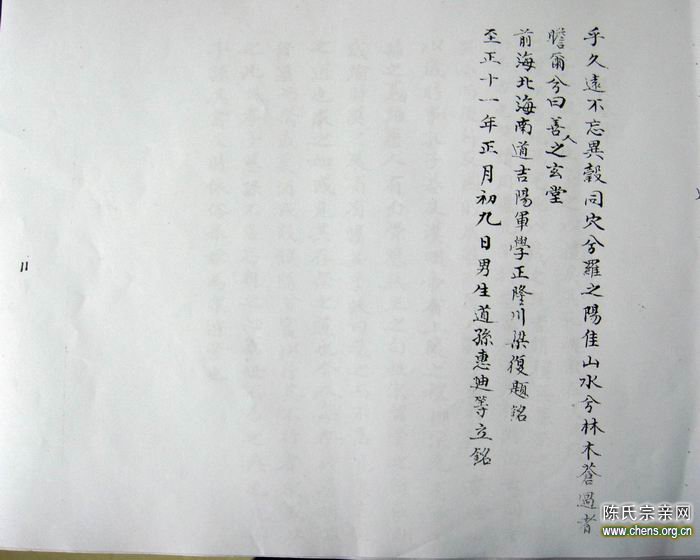 乎久遠不忘異穀同穴兮羅之陽佳山水兮林木蒼過者
瞻爾兮曰善人之玄堂
前海北海南道吉陽軍學正隆川梁復題銘
至正十一年正月初九日男生道孫惠迪等立銘
11
陈氏宗亲网
www.chens.org.cn